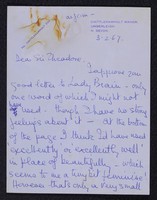 2.2.67.
Dear Sir Theodore
I suppose you
good letter to Lady Brain - only
one word of which I might not
have used - though I have no strong
feelings about it - at the bottom
of the page I think I'd have used
excellently or excellent, well
in place of beautifully - which
seems to me a kind of feminine!
However that's only a very small